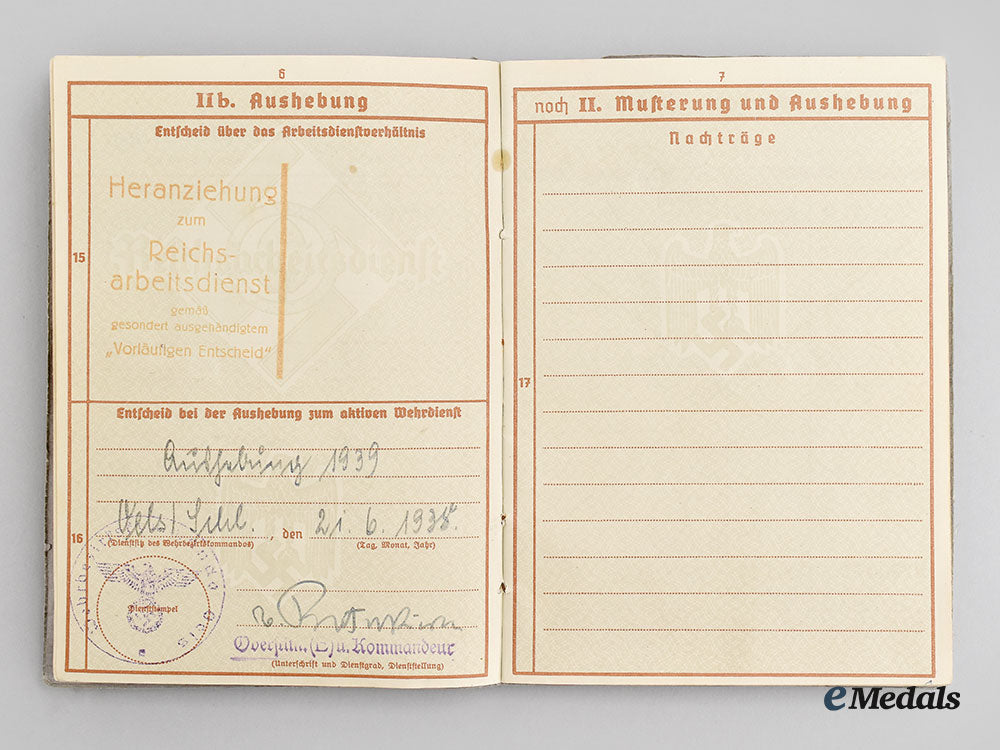 6
IIb. Aushebung
15
Entscheid über das Arbeitsdienstverhältnis
Heranziehung
zum
Reichs-
arbeitsdienst
gemäß
gesondert ausgehändigtem
„Vorläufigen Entscheid“
Reichsarbeitsdienst
16
Entscheid bei der Aushebung zum aktiven Wehrdienst
Aushebung 1939
Oels/Schl. , den 21. 6. 1938.
(Dienstsitz des Wehrbezirkskommandos) (Tag, Monat, Jahr)
Dienststempel
Oels
v.
Oberstltn. (E) u. Kommandeur
(Unterschrift und Dienstgrad, Dienststellung)
7
noch II. Musterung und Aushebung
17
Nachträge
eMedals